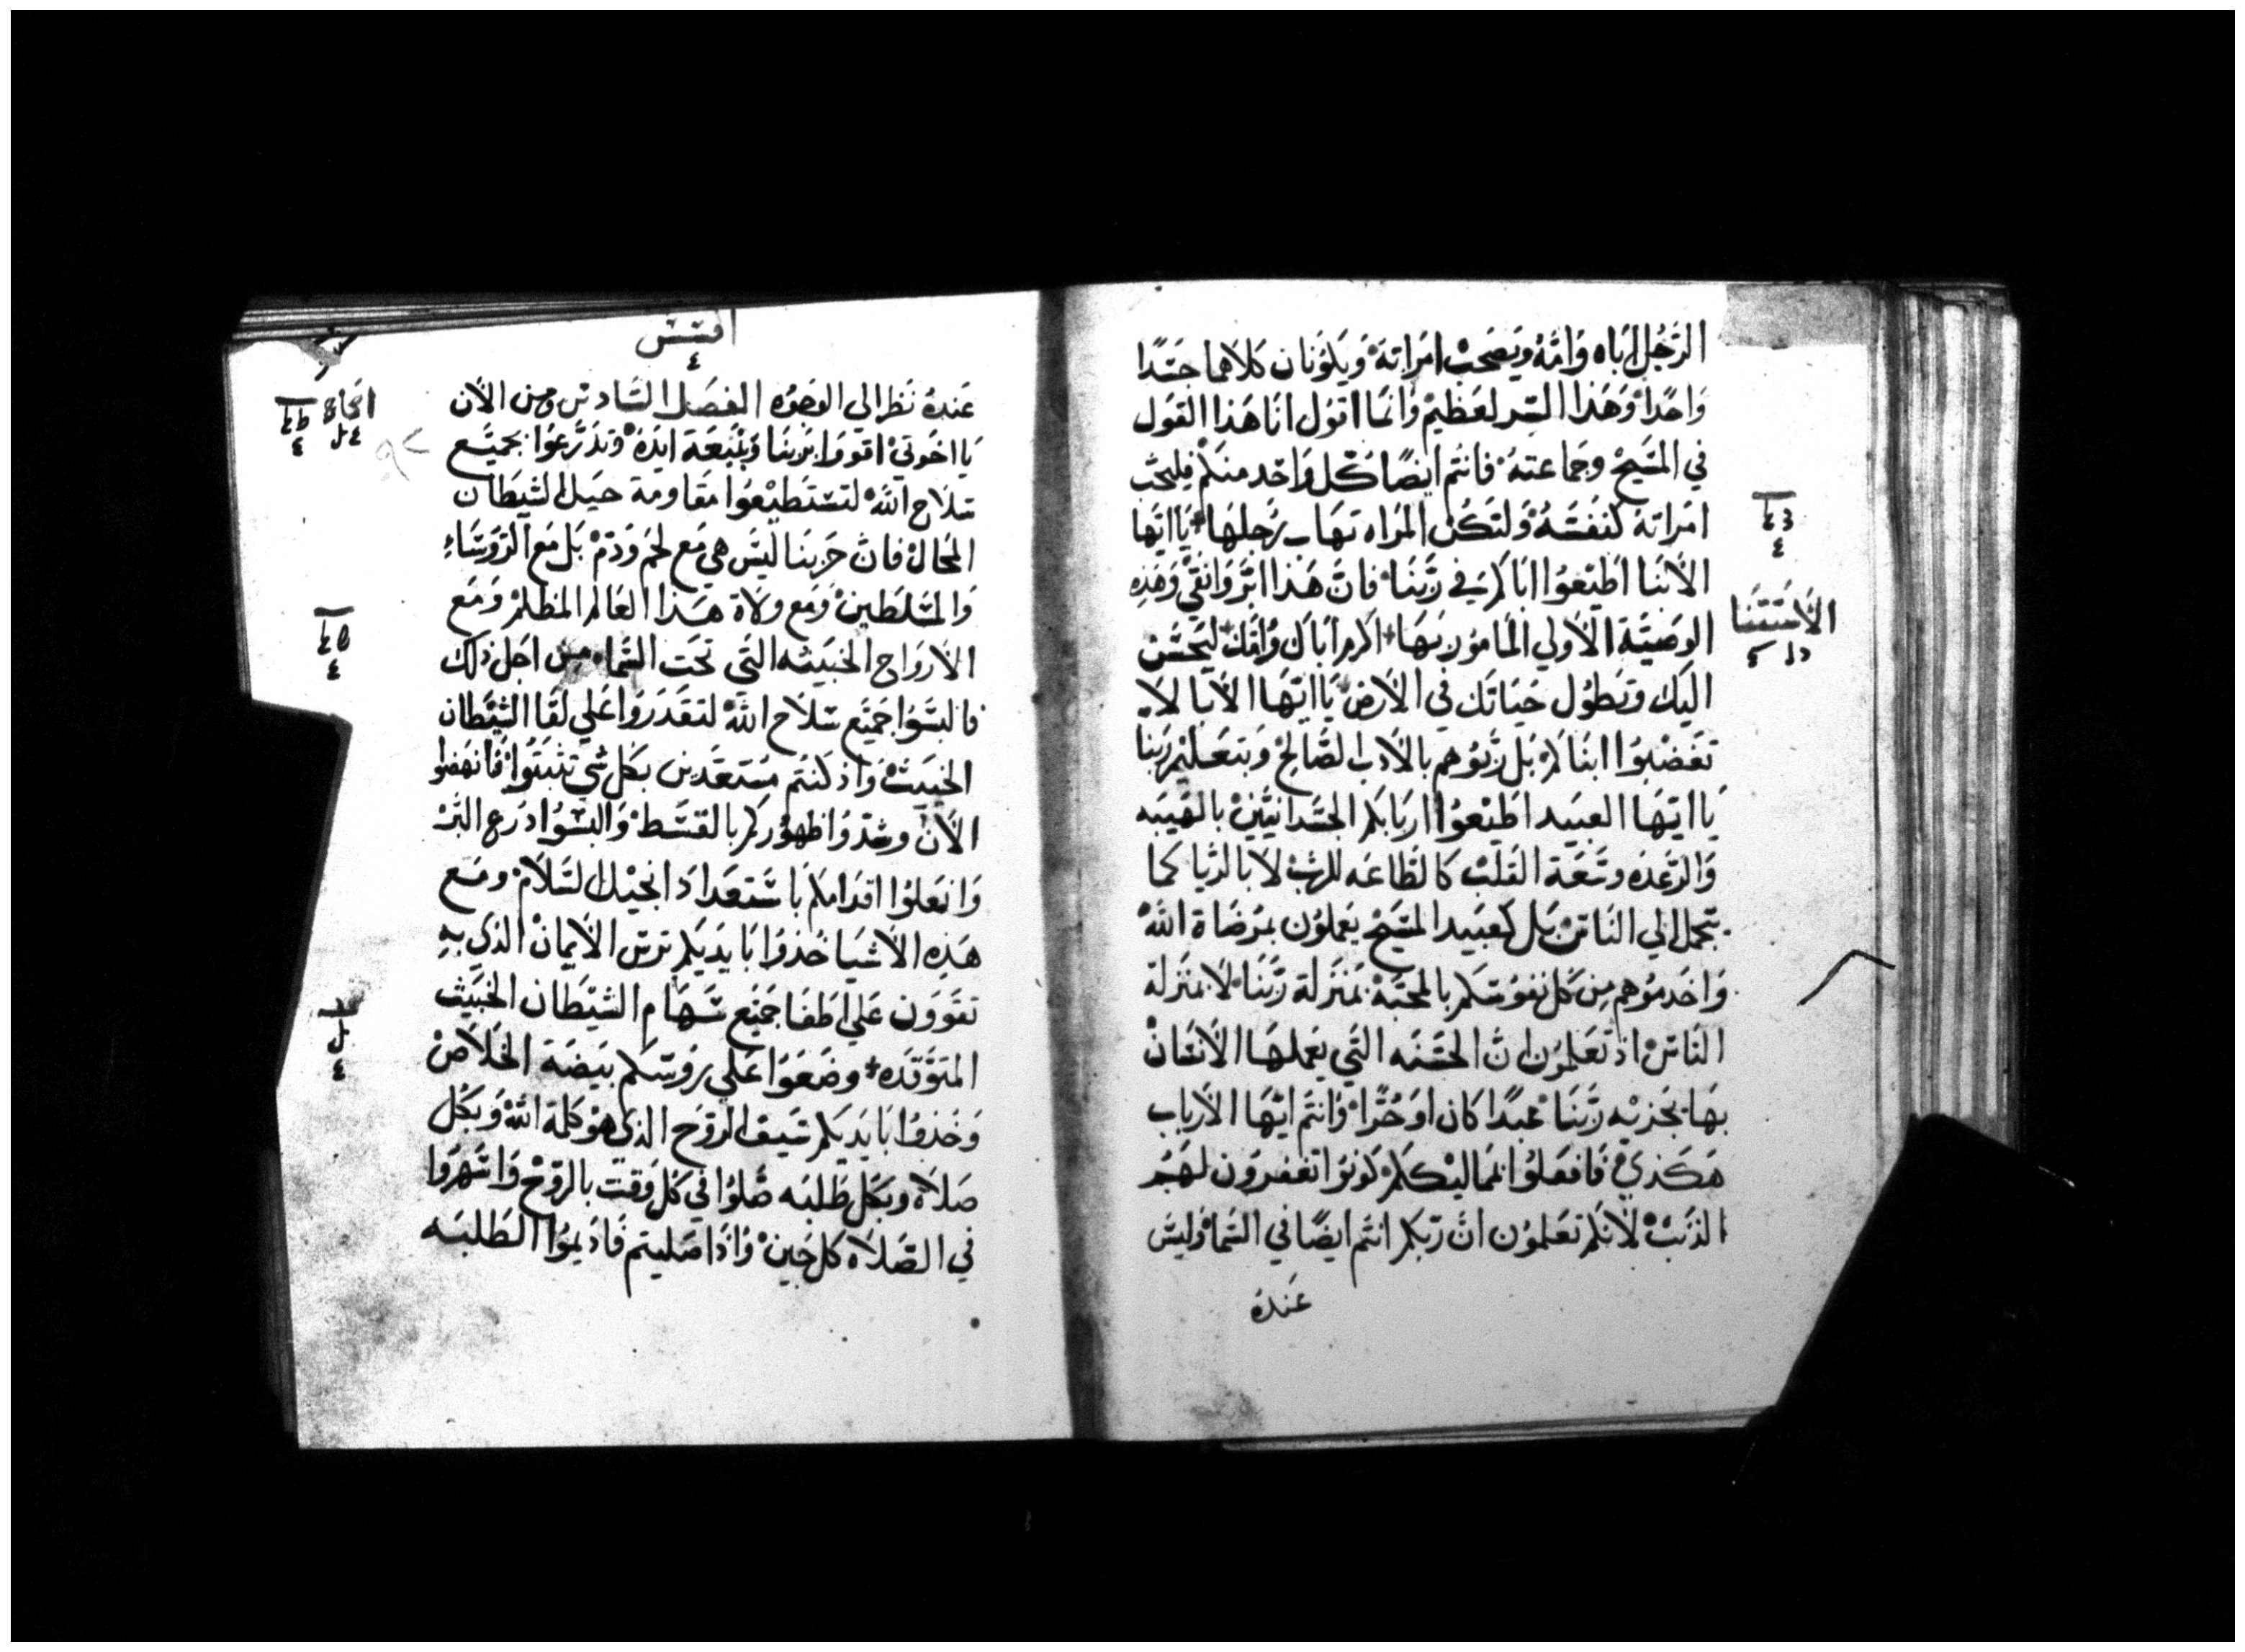 الرَّجُل اَباه وَامّهُ ويَصَحبْ امَراتهَ وَيَكوُنَان كلاَهما جسَدًا
وَاحدًا وَهَذا السّر لعَظيمْ وَانمَا اقوُل انَا هَذا القوَل
في المسَيحْ وجمَاعتهُ فانتم ايضًا كل وَاحد منكم فليحبّ
امَراتهَ كنفسَهُ وَلتكَن المَراه تهَاب رَجلهَا يَا ايّها
الاَبنَا اطَيْعوُا ابَاكم في رَبّنَا فانَّ هَذا ابَرّ وَانقيّ وَهَذِه
الوصَيّة الاَولي المَامُور بهَا اكرم ابَاك وُامّك ليَحسُنْ
اليَك وتَطوُل حَيَاتَك في الاَرضْ يَا ايّهَا الاَبا لاَ
تغَضبُوا ابنَاكم بَل رَبّوُهم بالاَدب الصَّالح وَبتعَليم رَبنا
يَا ايّهَا العبيد اطَيْعوُا اربَابكم الجسَدانيّينْ بالهَيبَه
وَالرّعدَه وسَّعَة القلَبْ كالطَاعَه للربْ لاَ بالريَا كما
تجمل الي النَاسْ بَل كعَبيد المسَيحْ يعَملوُن بمرَضَاة اللهْ
وَاخَدموُهم مِن كل نفوُسَكم بالمحبّة بمَنزَلة رَبّنَا لاَ بمَنزَلة
النَاسْ اذ تعَلموُن انّ الحسَنَه التَي يعَملهَا الاَنسَانْ
بهَا يَجزيه رَبّنَا عَبدًا كان اوَ حُرًّا وَانتم ايّهَا الاَربَاب
هَكذي فَافعَلوُا بممَاليكَكم كوَنوُا تغفروُن لهَم
الذنَبْ لاَنكم تعَلموُن انّ رَبّكم انتم ايضًا في السَما وَليسَ
عَندهُ
الاَستَثنَا
افسسَ
٤
عَندهُ نَظر الي الوجَوُه الفصَل السَّادسَ ومِن الاَن
يَا اخَوتي اقووَا برَبنَا وَبمنَعَة ايَدهْ وَتدَرّعوُا بجميَع
سَلاَح اللهْ لتسَتطَيْعوُا مقَاومَة حيَل الشيَطَان
المحَال فانّ حَربنَا ليسَ هي مَع لحَم وَدَمْ بَل مَع الرَوسَّاءِ
وَالمسَلطَينْ وَمَع ولاَة هَذا العَالم المظلمْ وَمَع
الاَروَاح الخبيَثه التَي تحَت السَّماء مِن اجَل ذلَك
فالبَسَوُا جَميَع سَلاَح اللهْ لتقدَروُا عَلي لقَا الشيَّطان
الخبيَثْ وَاذ كنتُم مسُتعَدين بكَل شي تثبتوُا فَانهضوا
الاَن وشدّوُا ظهوُركم بالقسَطْ وَالبسَوُا دَرع البّرْ
وَانعَلوُا اقدَامكم باسَّتعَدادَ انجيْل السَّلاَمْ ومَع
هَذِه الاَشيَا خُذوُا بَايدَيكم تُرسَ الاَيمانْ الذَي بِهِ
تقَووَن عَلي اطَفا جَميْع سَّهَام الشيَّطان الخبيَث
المتوَّقدَه وضَعَوُا عَلي روُسَكم بيَضَة الخَلاَصْ
وَخذوُا بَايدَيكم سَيفَ الروُح الذَي هوُ كلمَة اللهْ وَبكَل
صَلاَه وبكَل طَلبَه صَّلوُا في كل وَقت بالروُحْ وَاسَهروَا
في الصَّلاَه كل حَينْ وَاذا صَليتم فَادَيموُا الطَلبَه